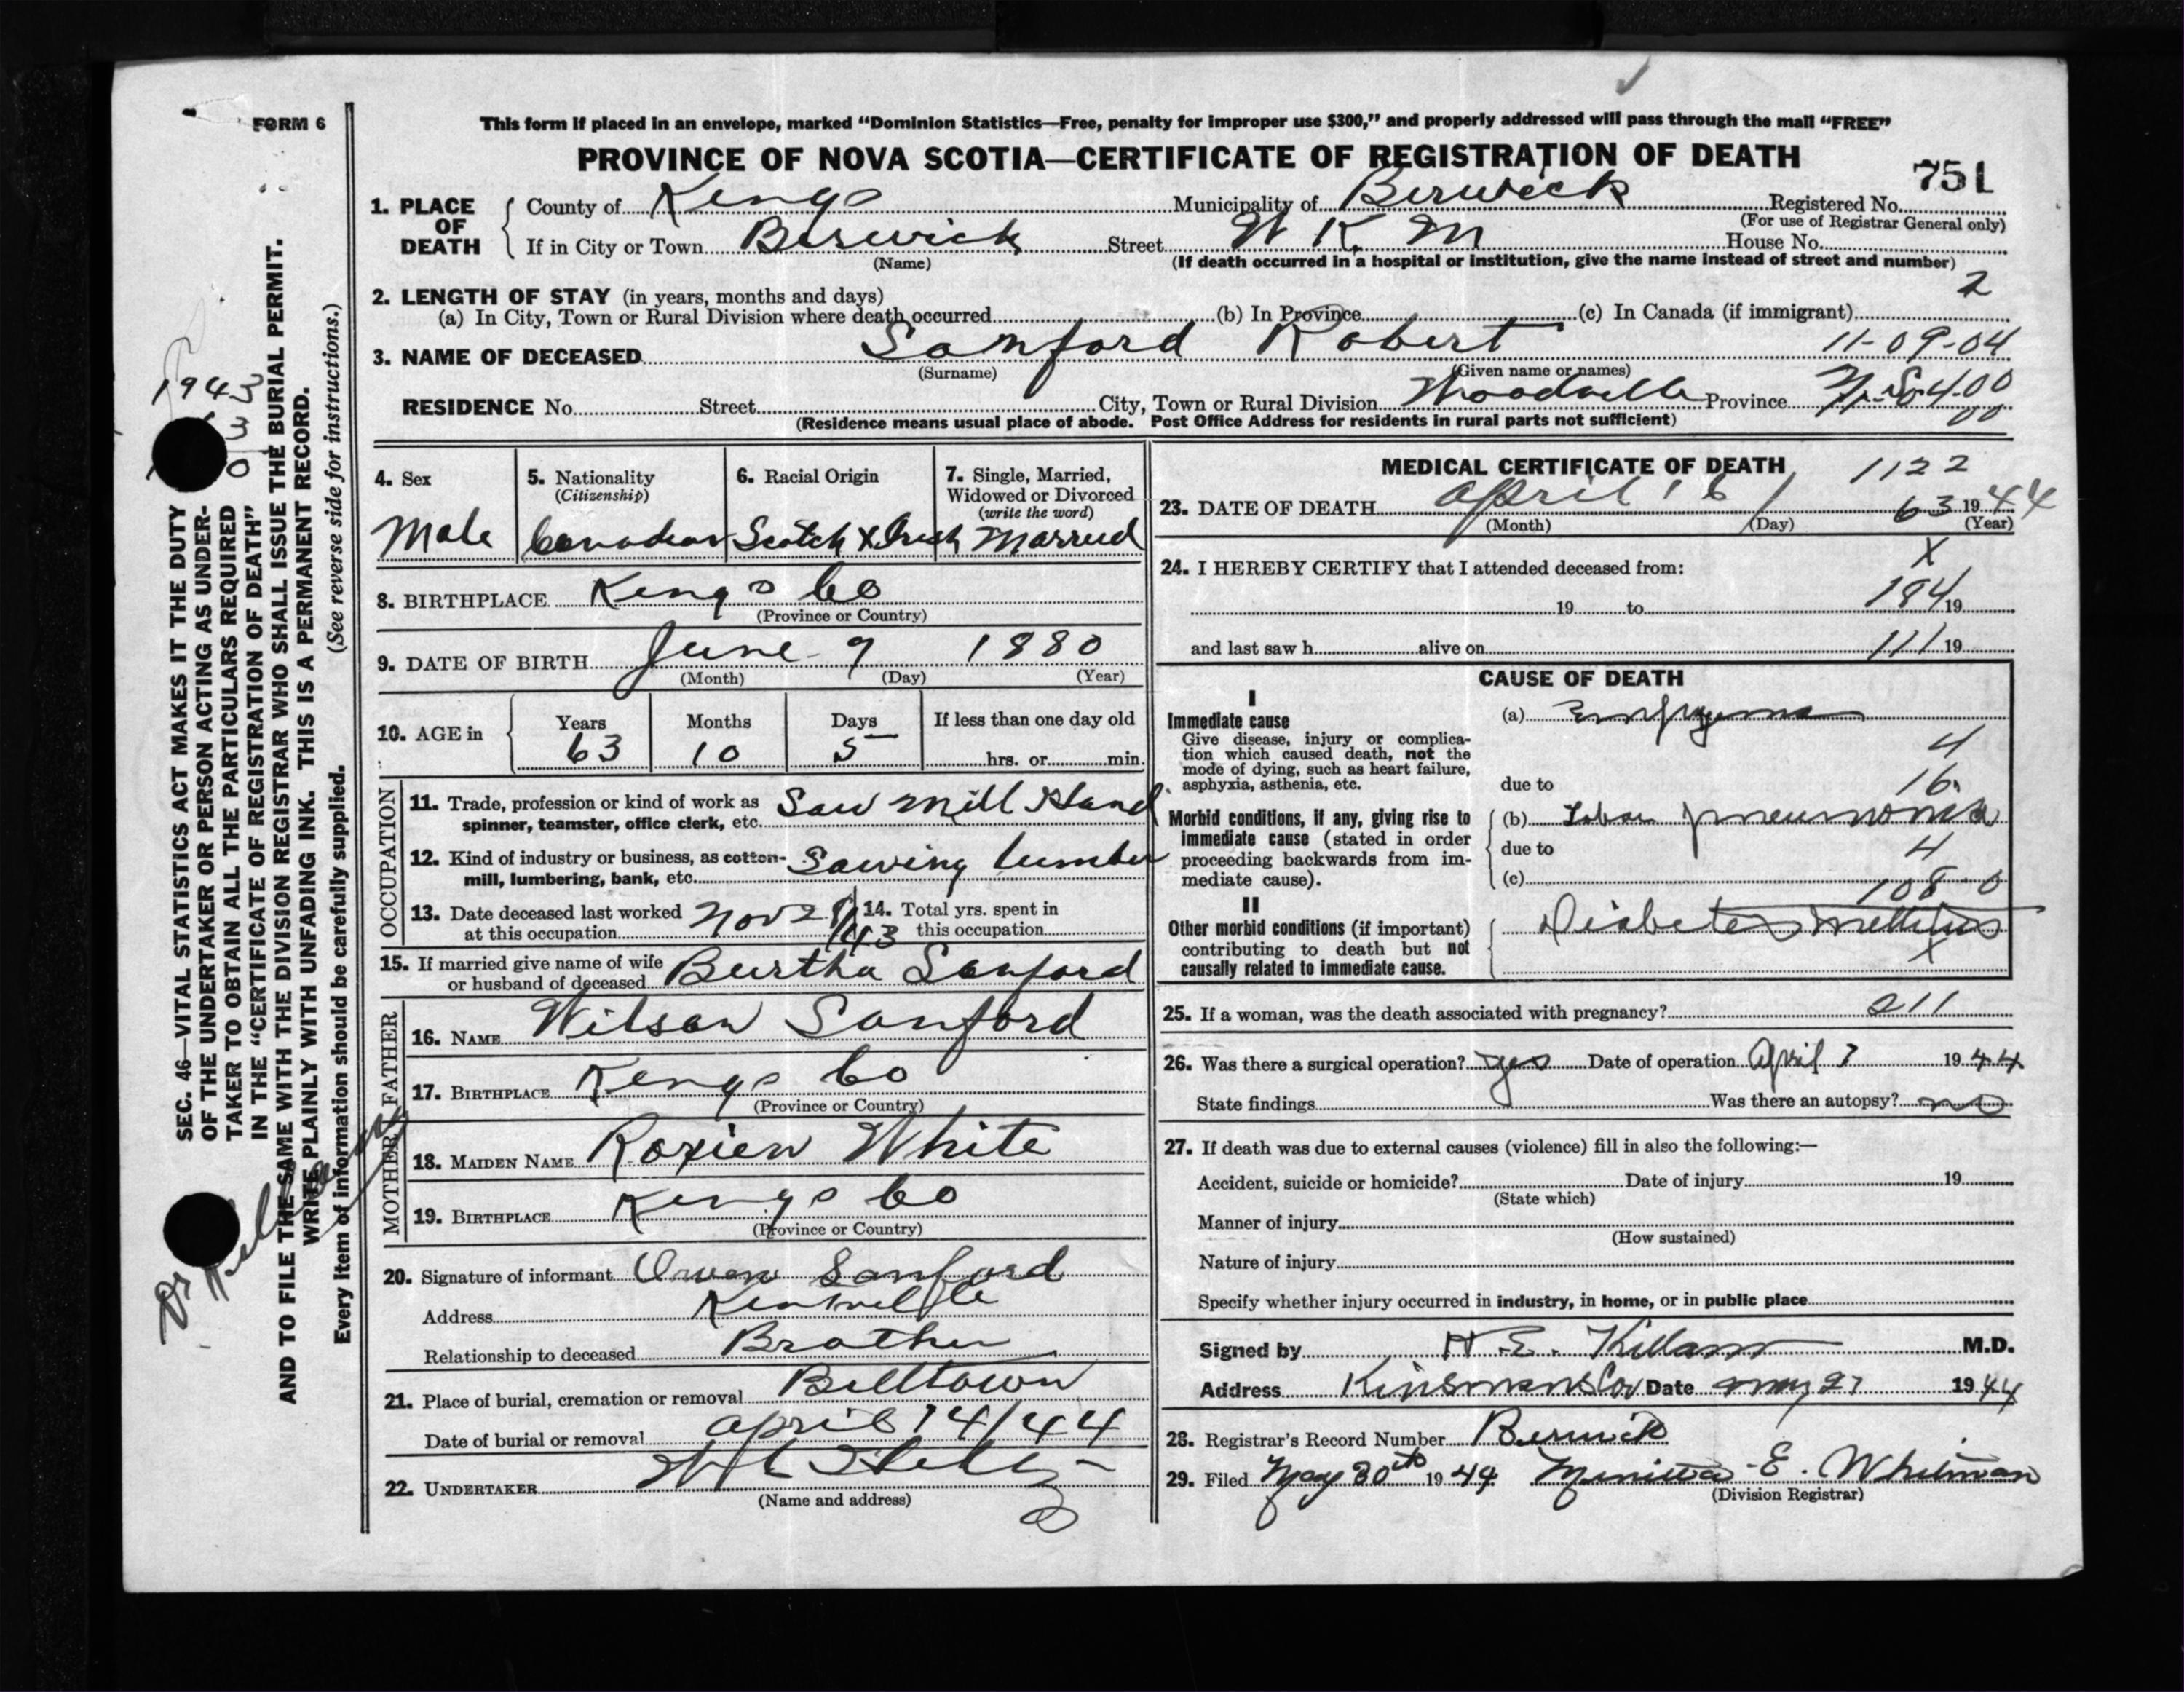 FORM 6
This form if placed in an envelope, marked “Dominion Statistics—Free, penalty for improper use $300,” and properly addressed will pass through the mail “FREE”
PROVINCE OF NOVA SCOTIA—CERTIFICATE OF REGISTRATION OF DEATH
751
1. PLACE OF DEATH
County of Kings Municipality of Berwick Registered No.
(For use of Registrar General only)
If in City or Town Berwick Street W K M House No.
(Name) (If death occurred in a hospital or institution, give the name instead of street and number)
2
2. LENGTH OF STAY (in years, months and days)
(a) In City, Town or Rural Division where death occurred (b) In Province (c) In Canada (if immigrant)
3. NAME OF DECEASED Sanford Robert 11-09-04
(Surname) (Given name or names)
RESIDENCE No. Street City, Town or Rural Division Woodville Province N.S. 4-00
00
(Residence means usual place of abode. Post Office Address for residents in rural parts not sufficient)
4. Sex
Male
5. Nationality
(Citizenship)
Canadian
6. Racial Origin
Scotch X Irish
7. Single, Married,
Widowed or Divorced
(write the word)
Married
8. BIRTHPLACE Kings Co
(Province or Country)
9. DATE OF BIRTH June 9 1880
(Month) (Day) (Year)
10. AGE in
Years Months Days If less than one day old
63 10 5 hrs. or min.
OCCUPATION
11. Trade, profession or kind of work as
spinner, teamster, office clerk, etc. Saw mill Hand
12. Kind of industry or business, as cotton-
mill, lumbering, bank, etc. Sawing lumber
13. Date deceased last worked
at this occupation Nov /43
14. Total yrs. spent in
this occupation
15. If married give name of wife
or husband of deceased Burtha Sanford
FATHER
16. NAME Wilson Sanford
17. BIRTHPLACE Kings Co
(Province or Country)
MOTHER
18. MAIDEN NAME Roxien White
19. BIRTHPLACE Kings Co
(Province or Country)
20. Signature of informant Orven Sanford
Address Kentville
Relationship to deceased Brother
21. Place of burial, cremation or removal Billtown
Date of burial or removal April 14/44
22. UNDERTAKER
(Name and address)
MEDICAL CERTIFICATE OF DEATH 1122
23. DATE OF DEATH April 63 1944
(Month) (Day) (Year)
24. I HEREBY CERTIFY that I attended deceased from: X
19 to 184 19
and last saw h alive on 111 19
CAUSE OF DEATH
I
Immediate cause
Give disease, injury or complica-
tion which caused death, not the
mode of dying, such as heart failure,
asphyxia, asthenia, etc.
(a) Empyema
4
due to 16
Morbid conditions, if any, giving rise to
immediate cause (stated in order
proceeding backwards from im-
mediate cause).
(b) Lobar pneumonia
due to 4
(c) 108-0
II
Other morbid conditions (if important)
contributing to death but not
causally related to immediate cause.
Diabetes mellitus
X
25. If a woman, was the death associated with pregnancy? 211
26. Was there a surgical operation? yes Date of operation April 7 1944
State findings Was there an autopsy? no
27. If death was due to external causes (violence) fill in also the following:—
Accident, suicide or homicide? Date of injury 19
(State which)
Manner of injury
(How sustained)
Nature of injury
Specify whether injury occurred in industry, in home, or in public place
Signed by H. E. Killam M.D.
Address Kinsmans Cor Date May 27 1944
28. Registrar's Record Number Berwick
29. Filed May 30th 1944 E. Whitman
(Division Registrar)
SEC. 46—VITAL STATISTICS ACT MAKES IT THE DUTY
OF THE UNDERTAKER OR PERSON ACTING AS UNDER-
TAKER TO OBTAIN ALL THE PARTICULARS REQUIRED
IN THE “CERTIFICATE OF REGISTRATION OF DEATH”
AND TO FILE THE SAME WITH THE DIVISION REGISTRAR WHO SHALL ISSUE THE BURIAL PERMIT.
WRITE PLAINLY WITH UNFADING INK. THIS IS A PERMANENT RECORD.
Every item of information should be carefully supplied. (See reverse side for instructions.)
1943
Dr